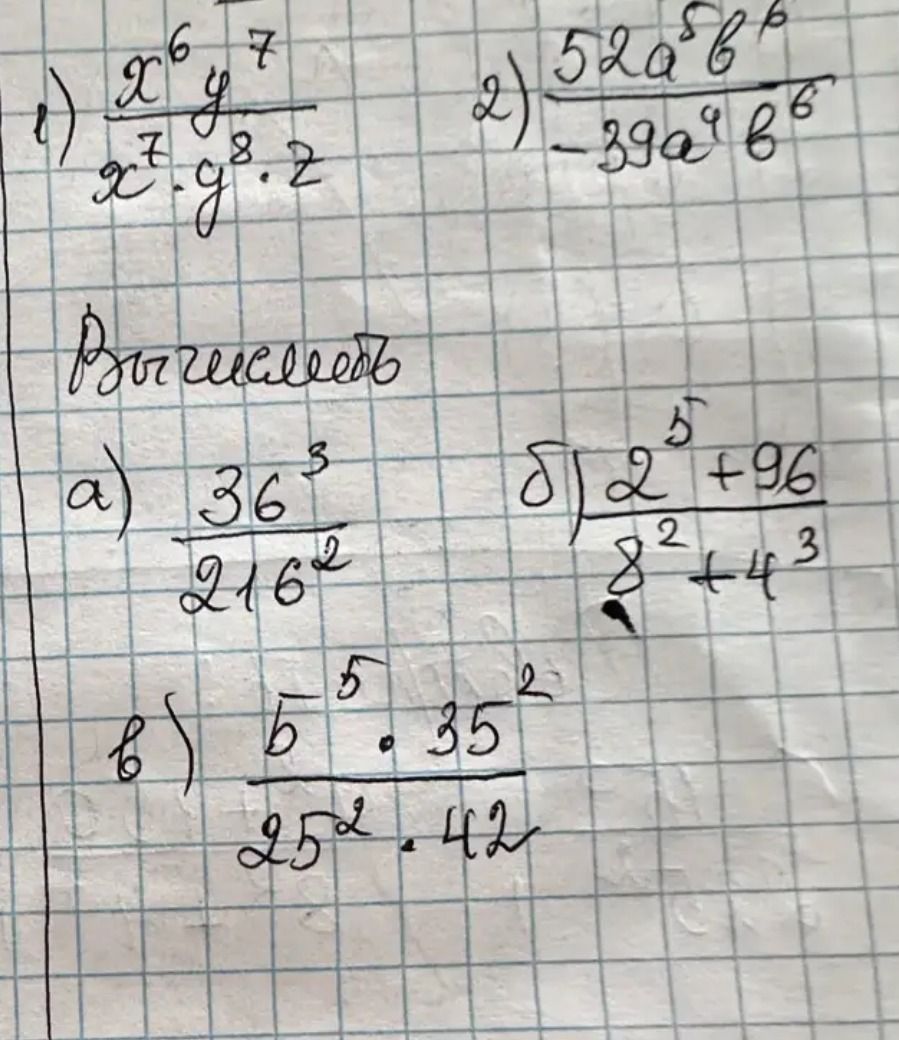 1) x⁶y⁷ / x⁷·y⁸·z 2) 52a⁵b⁶ / -39a⁴b⁶
Вычислить
а) 36³ / 216² б) 2⁵+96 / 8²+4³
в) 5⁵·35² / 25²·42